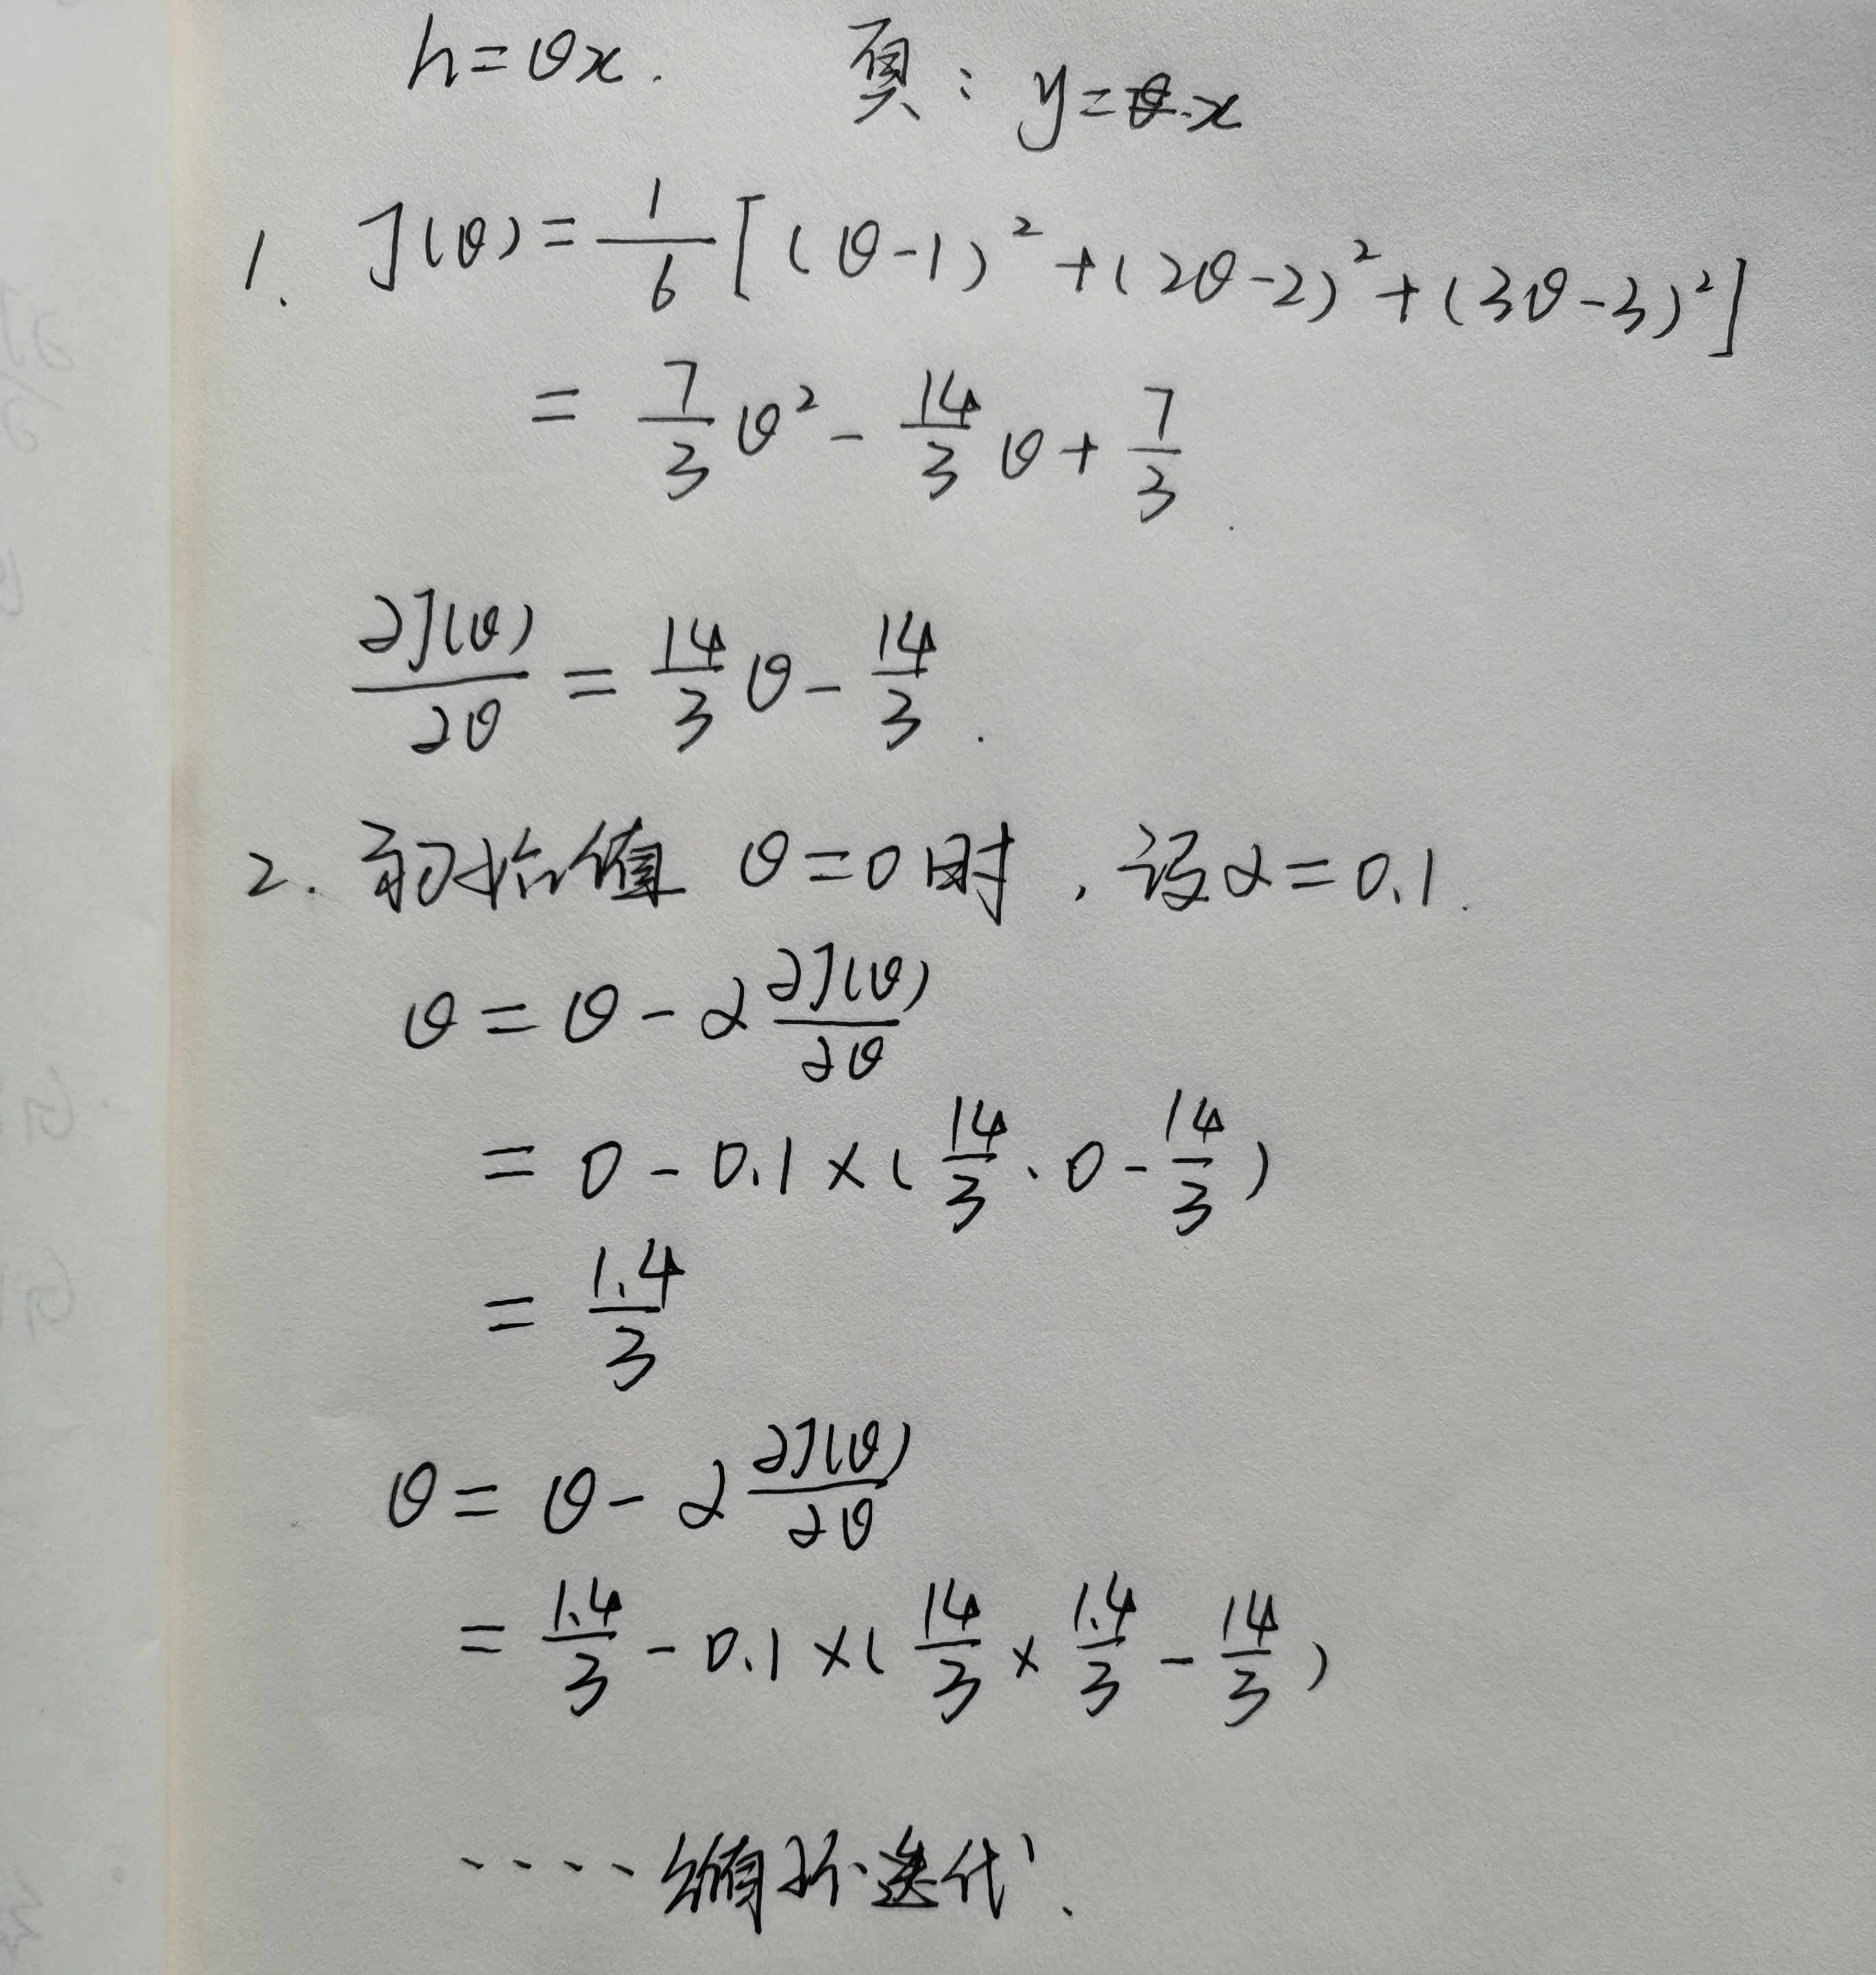 h=θx. 真: y=x
1. J(θ)=1/6[(θ-1)²+(2θ-2)²+(3θ-3)²]
= 7/3θ²-14/3θ+7/3.
∂J(θ)/∂θ=14/3θ-14/3.
2. 初始值 θ=0时,设α=0.1.
θ=θ-α∂J(θ)/∂θ
=0-0.1×(14/3·0-14/3)
=1.4/3
θ=θ-α∂J(θ)/∂θ
=1.4/3-0.1×(14/3×1.4/3-14/3)
.....循环迭代、